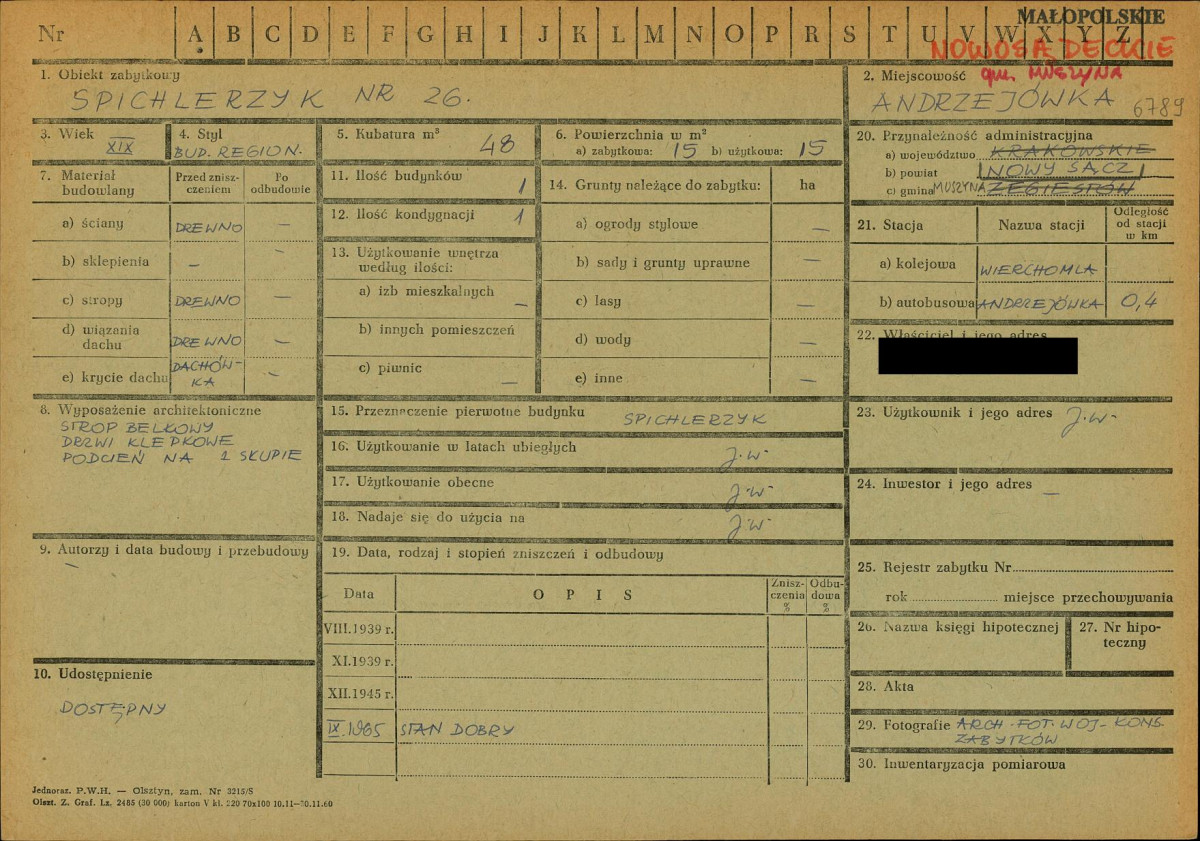 MAŁOPOLSKIE
Nr A B C D E F G H I J K L M N O P R S T U V W X Y Z
NOWOSĄDECKIE
1. Obiekt zabytkowy
SPICHLERZYK NR 26.
2. Miejscowość gm. MUSZYNA
ANDRZEJÓWKA 6789
3. Wiek
XIX
4. Styl
BUD. REGION.
5. Kubatura m³
48
6. Powierzchnia w m²
a) zabytkowa: 15 b) użytkowa: 15
20. Przynależność administracyjna
a) województwo KRAKOWSKIE
b) powiat NOWY SĄCZ
c) gmina MUSZYNA ZEGIESTÓW
7. Materiał budowlany
Przed znisz-
czeniem
Po
odbudowie
a) ściany DREWNO —
b) sklepienia — —
c) stropy DREWNO —
d) wiązania
dachu DREWNO —
e) krycie dachu DACHÓW-
KA —
11. Ilość budynków 1
12. Ilość kondygnacji 1
13. Użytkowanie wnętrza
według ilości:
a) izb mieszkalnych —
b) innych pomieszczeń
c) piwnic —
14. Grunty należące do zabytku: ha
a) ogrody stylowe —
b) sady i grunty uprawne —
c) lasy —
d) wody —
e) inne —
21. Stacja Nazwa stacji Odległość
od stacji
w km
a) kolejowa WIERCHOMLA
b) autobusowa ANDRZEJÓWKA 0,4
22. Właściciel i jego adres
8. Wyposażenie architektoniczne
STROP BELKOWY
DRZWI KLEPKOWE
PODCIEŃ NA 1 SŁUPIE
15. Przeznaczenie pierwotne budynku SPICHLERZYK
16. Użytkowanie w latach ubiegłych J.w-
17. Użytkowanie obecne J.w-
18. Nadaje się do użycia na J.w-
23. Użytkownik i jego adres J.w-
24. Inwestor i jego adres —
9. Autorzy i data budowy i przebudowy
—
19. Data, rodzaj i stopień zniszczeń i odbudowy
Data OPIS Znisz-
czenia
%
Odbu-
dowa
%
VIII.1939 r.
XI.1939 r.
XII.1945 r.
IX.1965 STAN DOBRY
10. Udostępnienie
DOSTĘPNY
25. Rejestr zabytku Nr
rok miejsce przechowywania
26. Nazwa księgi hipotecznej
27. Nr hipo-
teczny
28. Akta
29. Fotografie ARCH. FOT. WOJ- KONS.
ZABYTKÓW
30. Inwentaryzacja pomiarowa
Jednoraz. P.W.H. — Olsztyn, zam. Nr 3215/S
Olszt. Z. Graf. Lz. 2485 (30 000) karton V kl. 220 70x100 10.11—30.11.60